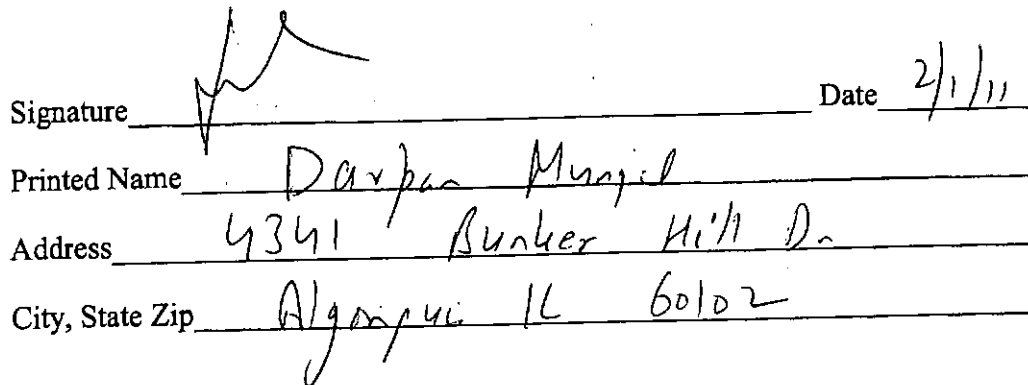 Signature Date 2/1/11
Printed Name Darpan Munjal
Address 4341 Bunker Hill Dr
City, State Zip IL 60102